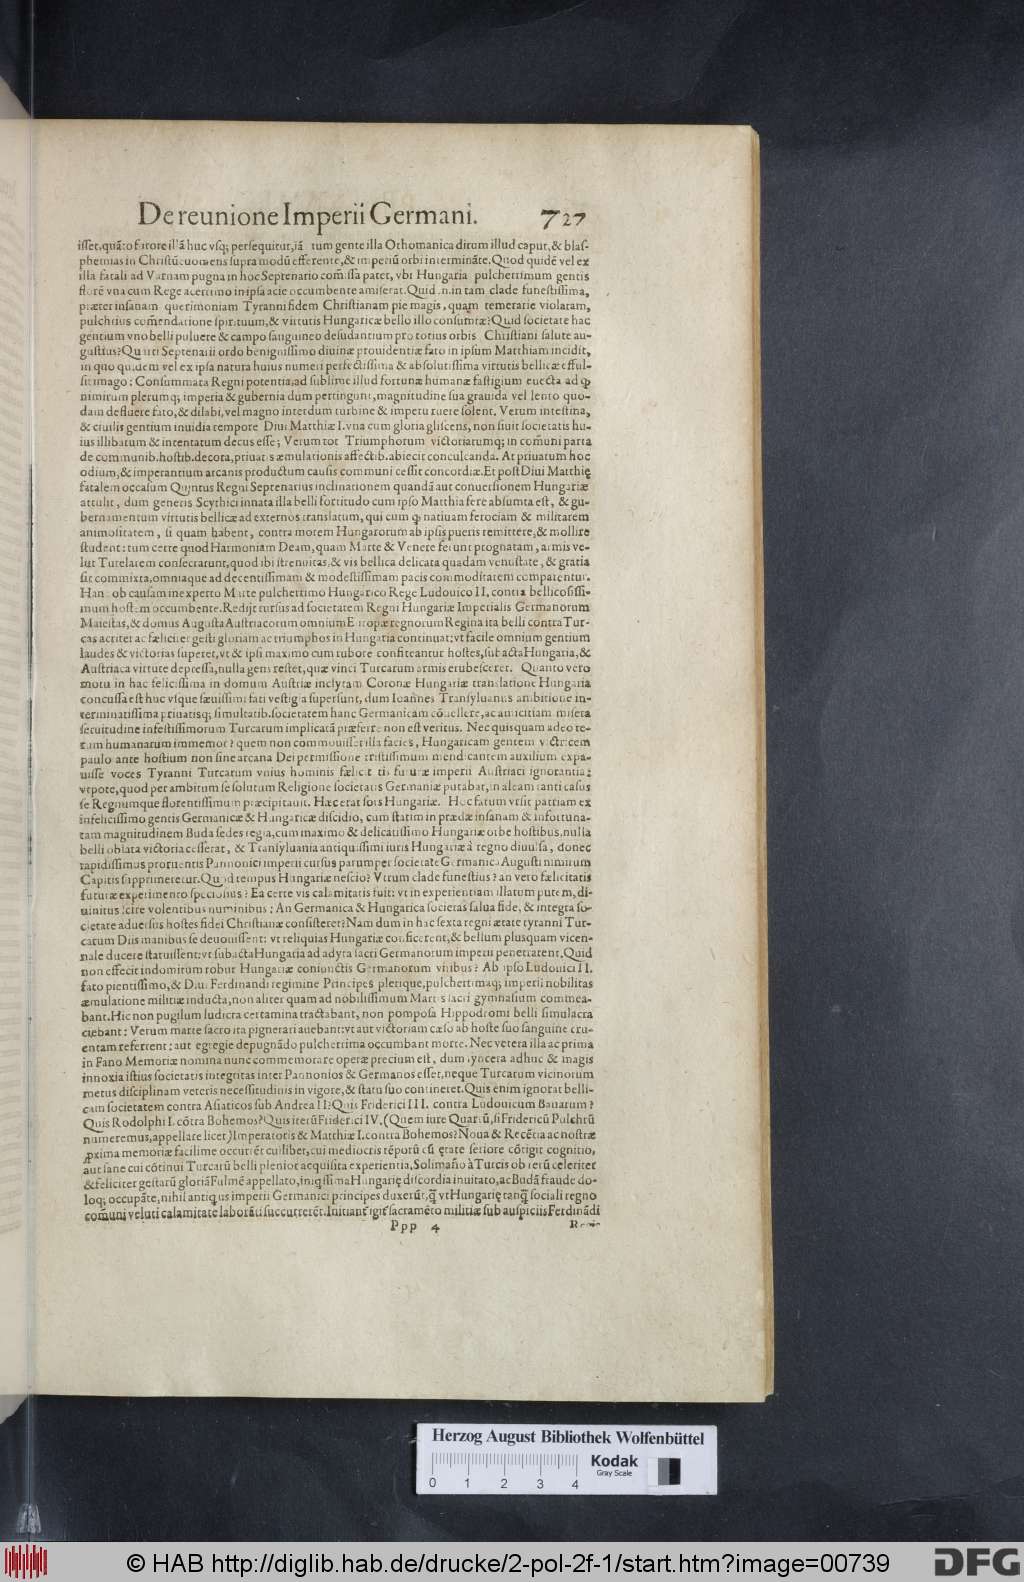 De reunione Imperii Germani. 727
isset, quāto furore illā huc vsq; persequitur, iā tum gente illa Othomanica dirum illud caput, & blas-
phemias in Christū euomens supra modū efferente, & imperiū orbi intermināte. Quod quidē vel ex
illa fatali ad Varnam pugna in hoc Septenario com̄issa patet, vbi Hungaria pulcherrimum gentis
florē vna cum Rege acerrimo in ipsa acie occumbente amiserat. Quid in tam clade funestissima,
præter insanam querimoniam Tyranni fidem Christianam pie magis, quam temerarie violatam,
pulchrius com̄endatione spirituum, & virtutis Hungaricæ bello illo consumtæ? Quid societate hac
gentium vno belli puluere & campo sanguineo desudantium pro totius orbis Christiani salute au-
gustius? Quarti Septenarii ordo benignissimo diuinæ prouidentiæ fato in ipsum Matthiam incidit,
in quo quidem vel ex ipsa natura huius numeri perfectissima & absolutissima virtutis bellicæ efful-
sit imago: Consummata Regni potentia, ad sublime illud fortunæ humanæ fastigium euecta ad
nimirum plerumq; imperia & gubernia dum pertingunt, magnitudine sua grauida vel lento quo-
dam defluere fato, & dilabi, vel magno interdum turbine & impetu ruere solent. Verum intestina,
& ciuilis gentium inuidia tempore Diui Matthiæ I. vna cum gloria gliscens, non siuit societatis hu-
ius illibatum & intentatum decus esse; Verum tot Triumphorum victoriarumq; in com̄uni parta
de communib. hostib. decora, priuatis æmulationis affectib. abiecit conculcanda. At priuatum hoc
odium, & imperantium arcanis productum causis communi cessit concordiæ. Et post Diui Matthię
fatalem occasum Quintus Regni Septenarius inclinationem quandā aut conuersionem Hungariæ
attulit, dum generis Scythici innata illa belli fortitudo cum ipso Matthia fere absumta est, & gu-
bernamentum virtutis bellicæ ad externos translatum, qui cum natiuam ferociam & militarem
animositatem, si quam habent, contra morem Hungarorum ab ipsis pueris remittere, & mollire
student: tum certe quod Harmoniam Deam, quam Marte & Venere ferunt prognatam, armis ve-
lut Tutelarem consecrarunt, quod ibi strenuitas, & vis bellica delicata quadam venustate, & gratia
sit commixta, omniaque ad decentissimam & modestissimam pacis commoditatem comparentur.
Hanc ob causam inexperto Marte pulcherrimo Hungarico Rege Ludouico II, contra bellicosissi-
mum hostem occumbente. Redijt rursus ad societatem Regni Hungariæ Imperialis Germanorum
Maiestas, & domus Augusta Austriacorum omnium Europæ regnorum Regina ita belli contra Tur-
cas acriter ac fæliciter gesti gloriam ac triumphos in Hungaria continuat: vt facile omnium gentium
laudes & victorias superet, vt & ipsi maximo cum rubore confiteantur hostes, subacta Hungaria, &
Austriaca virtute depressa, nulla gens restet, quæ vinci Turcarum armis erubesceret. Quanto vero
motu in hac felicissima in domum Austriæ inclytam Coronæ Hungariæ translatione Hungaria
concussa est huc vsque sæuissimi fati vestigia supersunt, dum Ioannes Transyluanus ambitione in-
terminatissima priuatisq; simultatib. societatem hanc Germanicam cōuellere, ac amicitiam misera
seruitudine infestissimorum Turcarum implicatā præferre non est veritus. Nec quisquam adeo re-
rum humanarum immemor? quem non commouisset illa facies, Hungaricam gentem victricem
paulo ante hostium non sine arcana Dei permissione tristissimum mendicantem auxilium expa-
uisse voces Tyranni Turcarum vnius hominis fælicitatis futuræ imperii Austriaci ignorantia:
vtpote, quod per ambitum se solutum Religione societatis Germaniæ putabat, in aleam tanti casus
se Regnumque florentissimum præcipitauit. Hæc erat sors Hungariæ. Hoc fatum vrsit patriam ex
infelicissimo gentis Germanicæ & Hungaricæ discidio, cum statim in prædæ insanam & infortuna-
tam magnitudinem Buda sedes regia, cum maximo & delicatissimo Hungariæ orbe hostibus, nulla
belli oblata victoria cesserat, & Transyluania antiquissimi iuris Hungariæ à regno diuulsa, donec
rapidissimus proruentis Pannonici imperii cursus parumper societate Germanica Augusti nimirum
Capitis supprimeretur. Quod tempus Hungariæ nescio? Vtrum clade funestius? an vero fælicitatis
futuræ experimento speciosius? Ea certe vis calamitatis fuit: vt in experientiam illatum putem, di-
uinitus scire volentibus numinibus: An Germanica & Hungarica societas salua fide, & integra so-
cietate aduersus hostes fidei Christianæ consisteret? Nam dum in hac sexta regni ætate tyranni Tur-
carum Diis manibus se deuouissent: vt reliquias Hungariæ conficerent, & bellum plusquam vicen-
nale ducere statuissent: vt subacta Hungaria ad adyta sacri Germanorum imperii penetrarent. Quid
non effecit indomitum robur Hungariæ coniunctis Germanorum viribus? Ab ipso Ludouici II.
fato pientissimo, & Diui Ferdinandi regimine Principes plerique, pulcherrimaq; imperii nobilitas
æmulatione militiæ inducta, non aliter quam ad nobilissimum Martis sacri gymnasium commea-
bant. Hic non pugilum ludicra certamina tractabant, non pomposa Hippodromi belli simulacra
ciebant: Verum marte sacro ita pignerari auebant: vt aut victoriam cæso ab hoste suo sanguine cru-
entam referrent: aut egregie depugnādo pulcherrima occumbant morte. Nec vetera illa ac prima
in Fano Memoriæ nomina nunc commemorare operæ precium est, dum syncera adhuc & magis
innoxia istius societatis integritas inter Pannonios & Germanos esset, neque Turcarum vicinorum
metus disciplinam veteris necessitudinis in vigore, & statu suo contineret. Quis enim ignorat belli-
cam societatem contra Asiaticos sub Andrea II? Quis Friderici III. contra Ludouicum Bauarum?
Quis Rodolphi I. cōtra Bohemos? Quis iterū Friderici IV. (Quem iure Quartū, si Fridericū Pulchrū
numeremus, appellare licet) Imperatoris & Matthiæ I. contra Bohemos? Noua & Recētia ac nostræ
proxima memoriæ facilime occurrēt cuilibet, cui mediocris tēporū cū ętate seriore cōtigit cognitio,
aut sane cui cōtinui Turcarū belli plenior acquisita experientia, Solimañ̄o à Turcis ob rerū celeriter
& feliciter gestarū gloriā Fulmē appellato, iniquissima Hungarię discordia inuitato, ac Budā fraude do-
loq; occupāte, nihil antiquius imperii Germanici principes duxerūt, q̄ vt Hungarię tanq̄ sociali regno
com̄uni veluti calamitate laborāti succurrerēt. Initiant igit sacramēto militiæ sub auspiciis Ferdinādi
Ppp 4 Regis
Herzog August Bibliothek Wolfenbüttel
0 1 2 3 4
Kodak
Gray Scale
© HAB http://diglib.hab.de/drucke/2-pol-2f-1/start.htm?image=00739
DFG